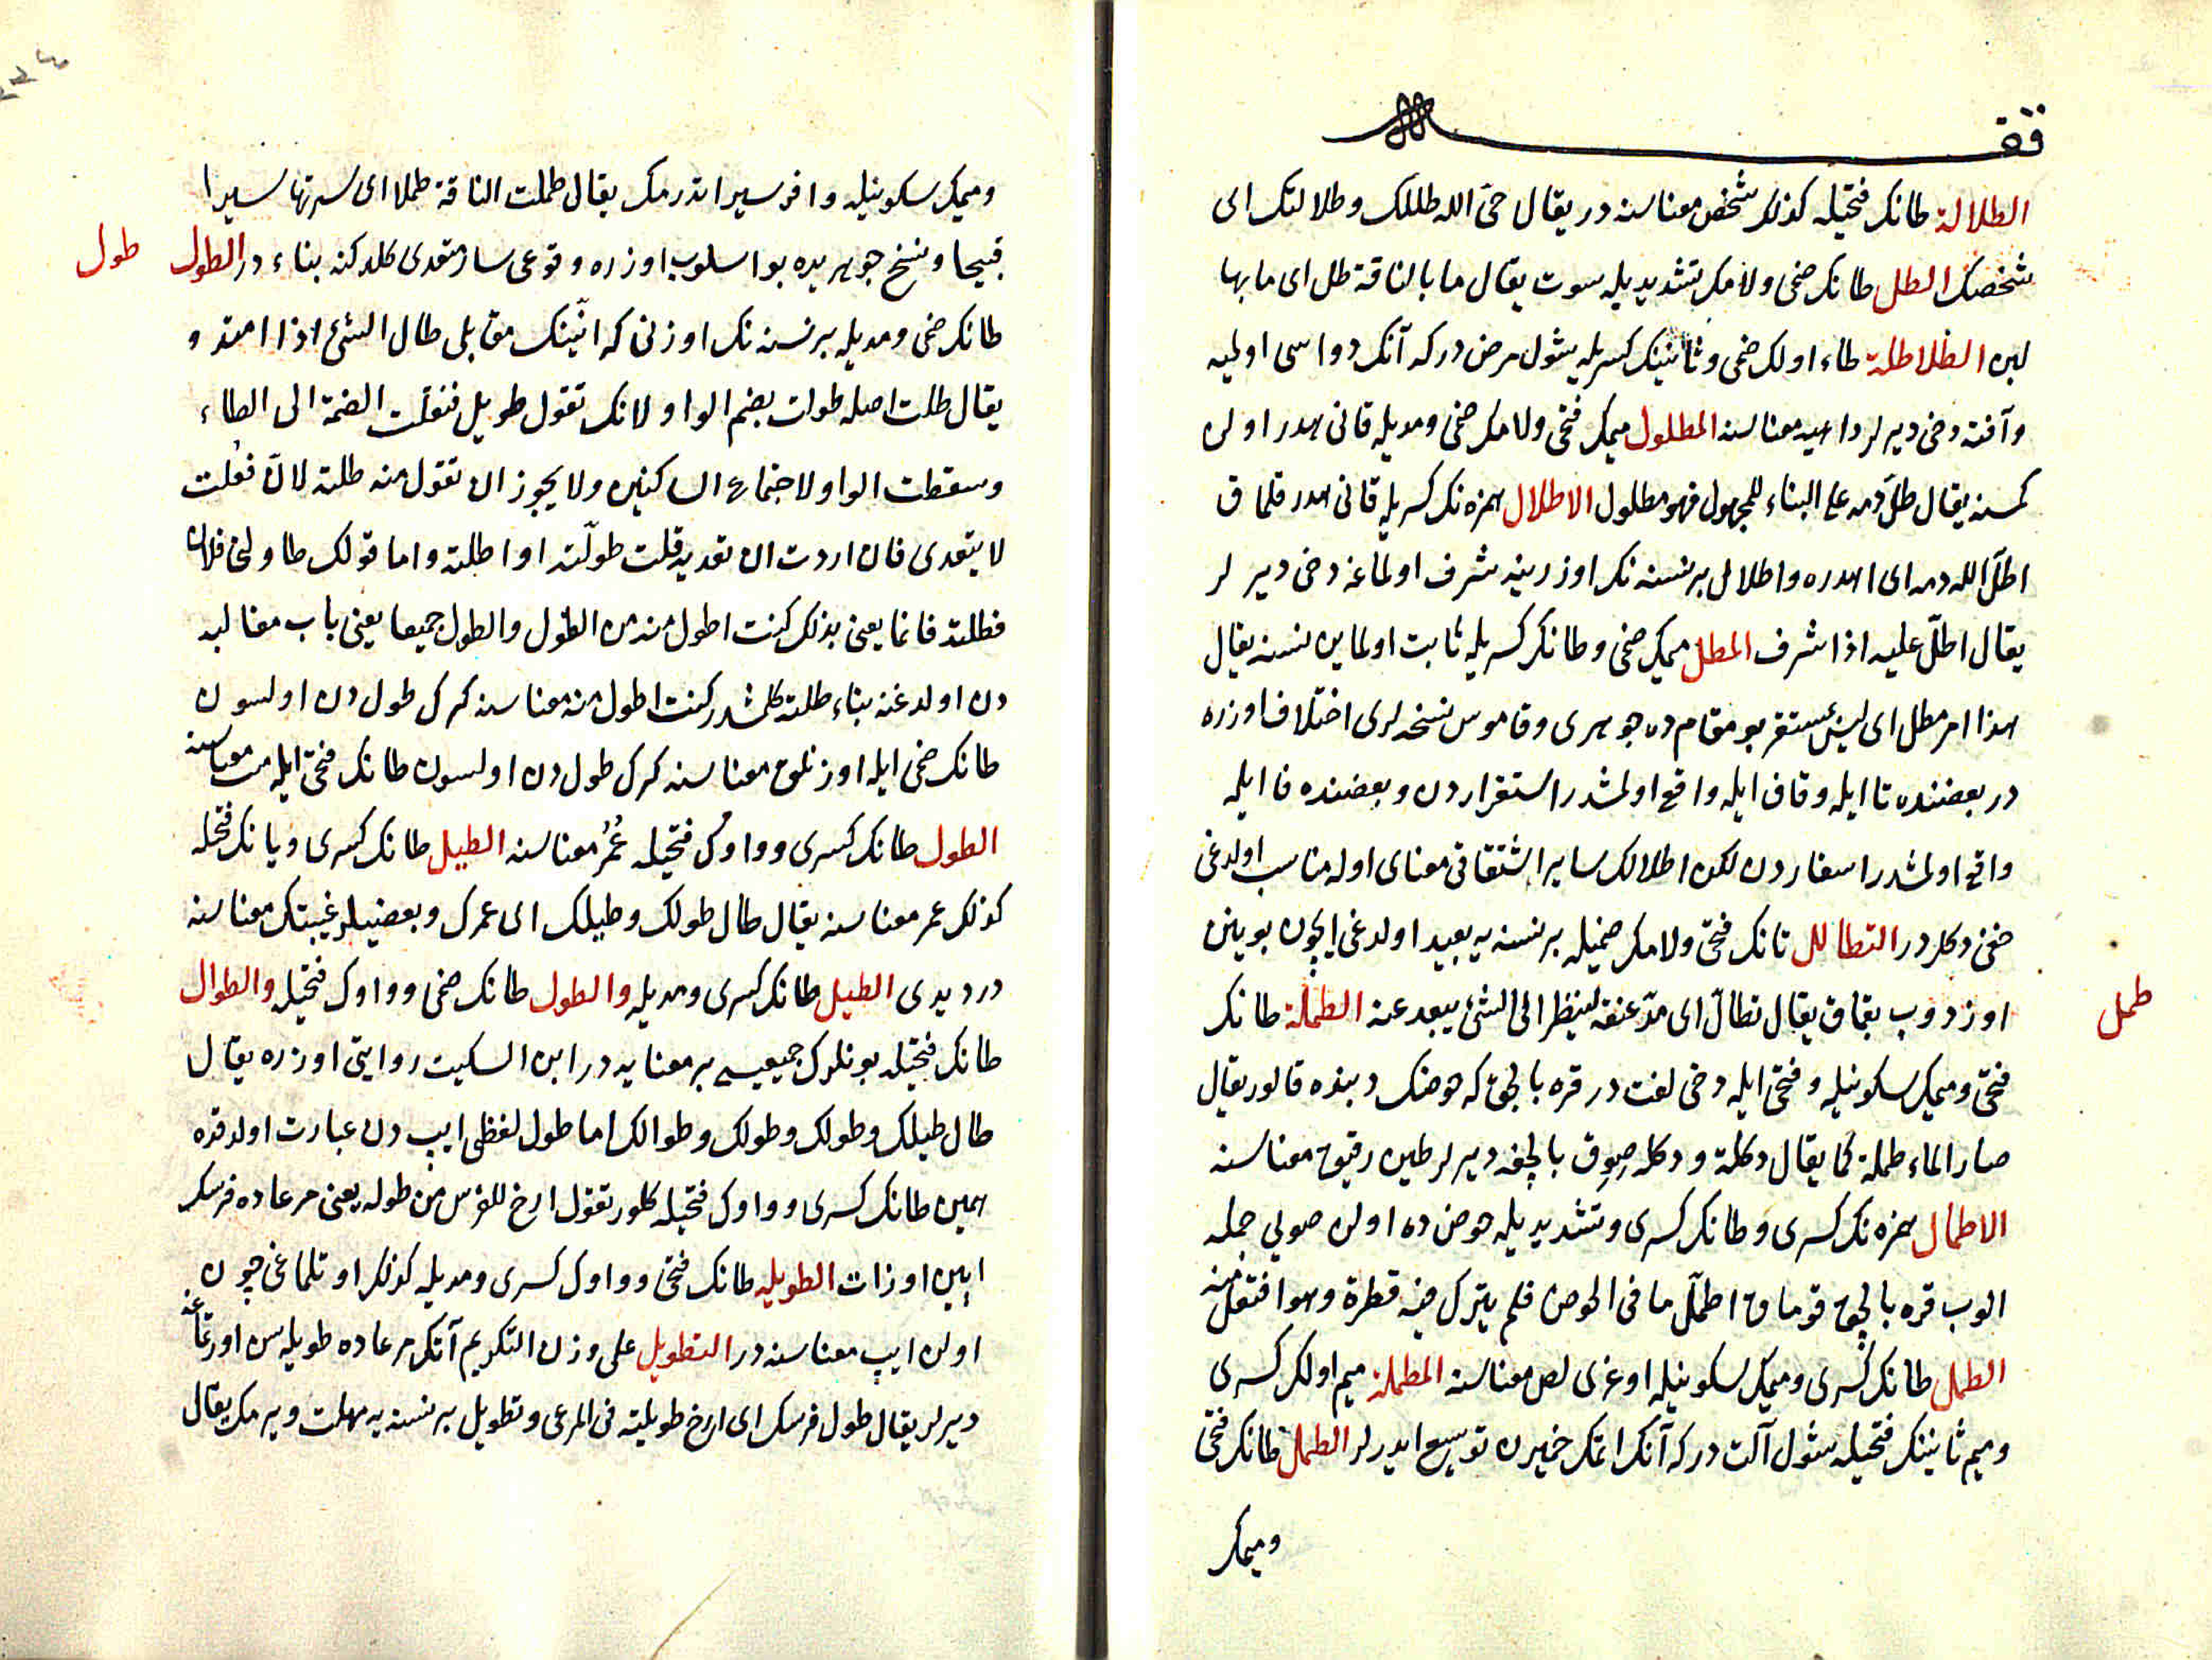 وقف
الطلالة طانك فتحيله كذلك شخص معناسنه در يقال حيّ الله طللك وطلالتك اى
شخصك الطل طانك ضمى ولامك تشديديله سوت يقال ما بالناقة طل اى ما بها
لبن الطلاطلة طاء اولك ضمى وثانينك كسريله شول مرض در كه آنك دواسى اولميه
وآفته دخى ديرلر داهيه معناسنه المطلول ميمك فتحى ولامك ضمى ومديله قانى هدر اولن
كمسنه يقال طلّ دمه على البناء للمجهول فهو مطلول الاطلال همزه نك كسريله قانى هدر قلماق
اطلّ الله دمه اى اهدره واطلال برنسنه نك اوزرينه مشرف اولماغه دخى ديرلر
يقال اطلّ عليه اذا اشرف المطل ميمك ضمى وطانك كسريله ثابت اولماين نسنه يقال
هذا امر مطل اى ليس بمستقر بو مقام ده جوهرى وقاموس نسخه لرى اختلاف اوزره
در بعضنده تا ايله وقاف ايله واقع اولمشدر استقراردن وبعضنده فا ايله
واقع اولمشدر اسفاردن لكن اطلالك ساير اشتقاقى معناى اوله مناسب اولدغى
خفى دكلدر التطالل تانك فتحى ولامك ضميله برنسنه يه بعيد اولدغى ايچون بوينن
اوزدوب بقماق يقال تطالّ اى مدّ عنقه لينظر الى الشئ يبعد عنه الطملة طانك
طمل
فتحى وميمك سكونيله وفتحى ايله دخى لغت در قره بالچق كه حوضك دبنده قالور يقال
صار الماء طملة كما يقال دكلة ودكله صووق بالچغه ديرلر طين رقيق معناسنه
الاطمال همزه نك كسرى وطانك كسرى وتشديديله حوض ده اولن صويى جمله
الوب قره بالچق قوماق اطمل ما فى الحوض فلم يترك فيه قطرة وهو افتعل منه
الطمل طانك كسرى وميمك سكونيله اوغرى لص معناسنه المطملة ميم اولك كسرى
وميم ثانينك فتحيله شول آلت در كه آنك اتمك خميرن توسيع ايدرلر الطمل طانك فتحى
وميمك
وميمك سكونيله وافر سير اتدرمك يقال طملت الناقة طملا اى سرتها سيرا
قبيحا ونسخ جوهريده بو اسلوب اوزره وقوعى ساز متعدى كلدكنه بناء در الطول
طول
طانك ضمى ومديله برنسنه نك اوزنى كه انينك مقابلى طال الشئ اذا امتد و
يقال طلت اصله طولت بضم الواو لانك تقول طويل فنقلت الضمة الى الطاء
وسقطت الواو لاجتماع الساكنين ولا يجوز ان تقول منه طلته لانّ فعُلت
لا يتعدى فان اردت ان تعديه قلت طولّته او اطلته واما قولك طاولنى فلان
فطلته فانما يعنى بذلك كنت اطول منه من الطول والطول جميعا يعنى باب مغالبه
دن اولدغنه بناء طلته كلمشدر كنت اطول منه معناسنه كرك طول دن اولسون
طانك ضمى ايله اوزنلق معناسنه كرك طول دن اولسون طانك فتحى ايله منت معناسنه
الطول طانك كسرى وواوك فتحيله عُمُر معناسنه الطيل طانك كسرى ويانك فتحله
كذلك عمر معناسنه يقال طال طولك وطيلك اى عمرك وبعضيلر غيبتك معناسنه
در ديدى الطيل طانك كسرى ومديله والطول طانك ضمى وواوك فتحيله والطوال
طانك فتحيله بونلرك جميعيسى بر معنايه در ابن السكيت روايتى اوزره يقال
طال طيلك وطولك وطولك وطوالك اما طول لفظى ايپ دن عبارت اولدقده
همين طانك كسرى وواوك فتحيله كلور تقول ارخ للفرس من طوله يعنى مرعاده فرسك
ايپين اوزات الطويله طانك فتحى وواوك كسرى ومديله كذلك اوتلماغى چون
اولن ايپ معناسنه در التطويل على وزن التكريم آتك مرعاده طويله سن اورتماغه
ديرلر يقال طول فرسك اى ارخ طويلته فى المرعى وتطويل برنسنه يه مهلت ويرمك يقال